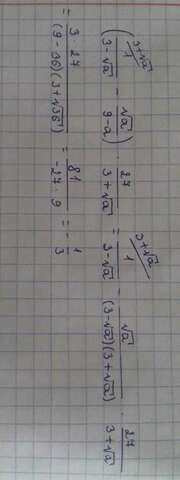 (1/(3-√a) ^(3+√a) - √a/(9-a)) · 27/(3+√a) = 1/(3-√a) ^(3+√a) - √a/((3-√a)(3+√a)) · 27/(3+√a)
= 3·27/((9-36)(3+√36)) = 81/(-27·9) = -1/3